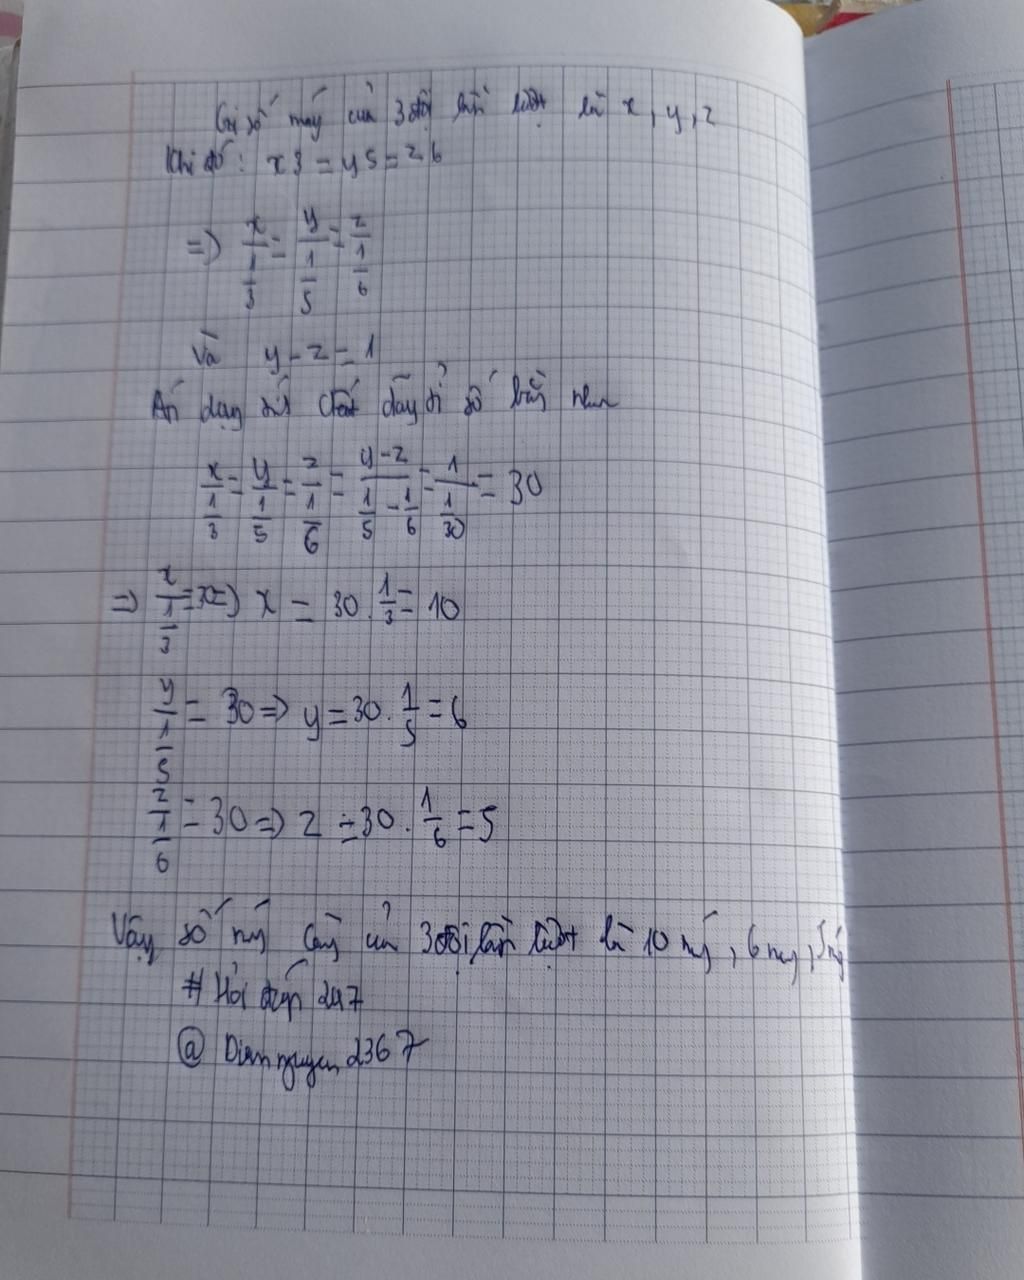 Gọi số máy của 3 đội lần lượt là x, y, z
Khi đó: x3 = y5 = z6
=> x/(1/3) = y/(1/5) = z/(1/6)
Và y - z = 1
Áp dụng t/c chất dãy tỉ số bằng nhau
x/(1/3) = y/(1/5) = z/(1/6) = (y-z)/(1/5 - 1/6) = 1/(1/30) = 30
=> x/(1/3) = 30 => x = 30 . 1/3 = 10
y/(1/5) = 30 => y = 30 . 1/5 = 6
z/(1/6) = 30 => z = 30 . 1/6 = 5
Vậy số máy cày của 3 đội lần lượt là 10 máy, 6 máy, 5 máy
# Hỏi đáp 247
@ Diemnguyen2367